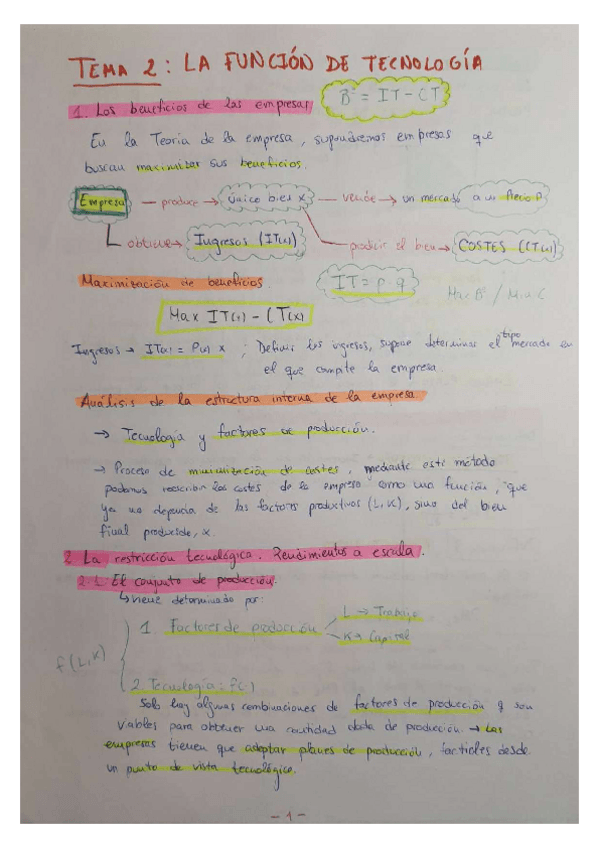 TEMA 2: LA FUNCIÓN DE TECNOLOGÍA
1. Los beneficios de las empresas
Bº = IT - CT
En la Teoría de la empresa, supondremos empresas que
buscan maximizar sus beneficios.
Empresa — produce → único bien x — vende → un mercado a un Precio P
obtiene → Ingresos (IT(x)) producir el bien → COSTES (CT(x))
Maximización de beneficios.
IT = p·q
Max Bº / Min C
Max IT(x) - CT(x)
Ingresos → IT(x) = P(x) x ; Definir los ingresos, supone determinar el tipo mercado en
el que compite la empresa.
Análisis de la estructura interna de la empresa.
→ Tecnología y factores de producción.
→ Proceso de minimización de costes, mediante este método
podemos reescribir los costes de la empresa como una función, que
ya no dependa de los factores productivos (L, K), sino del bien
final producido, x.
2. La restricción tecnológica. Rendimientos a escala.
2.1. El conjunto de producción.
↳ viene determinado por:
f(L, K)
1. Factores de producción
L → Trabajo
K → Capital
2. Tecnología: f(·)
Solo hay algunas combinaciones de factores de producción q son
viables para obtener una cantidad dada de producción → las
empresas tienen que adoptar planes de producción, factibles desde
un punto de vista tecnológico.
- 1 -